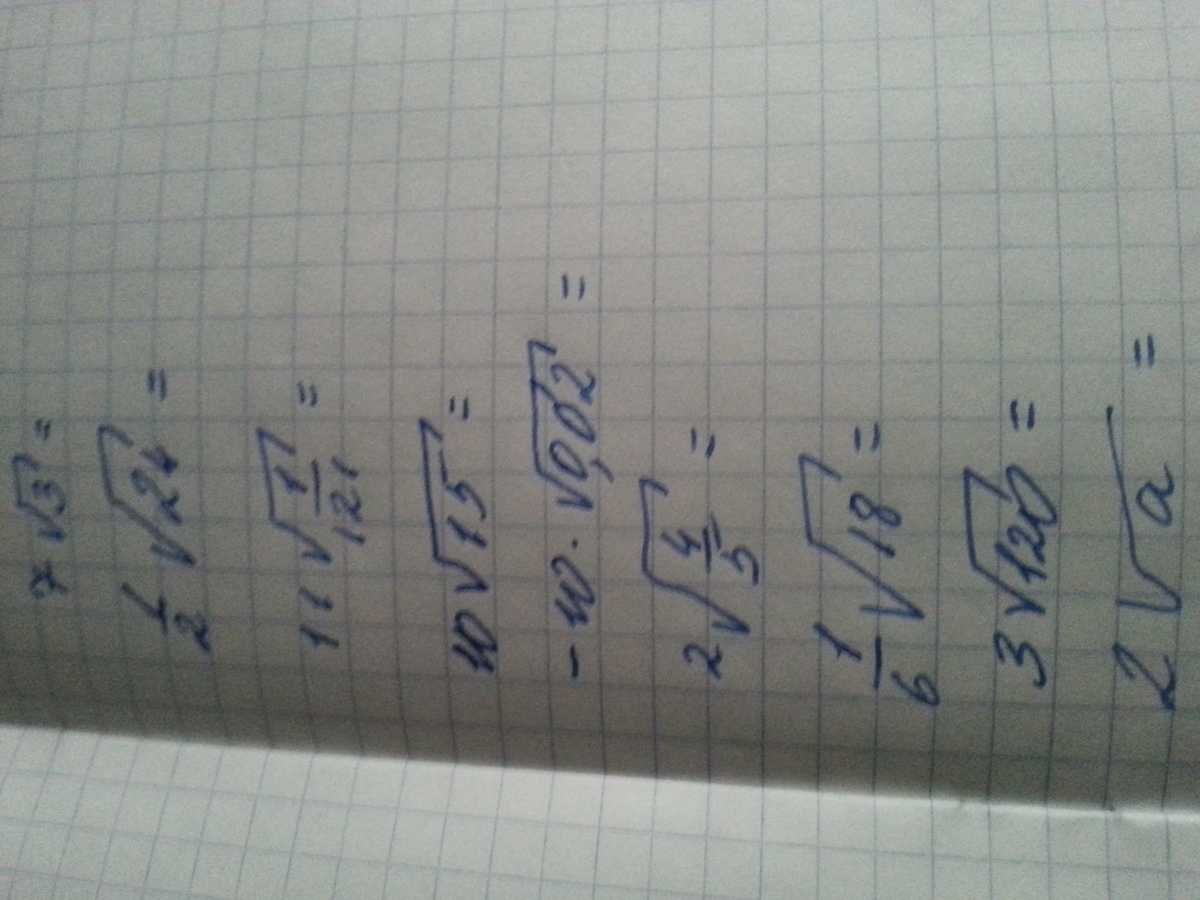 7√3 =
1/2 √24 =
11 √1/121 =
10√15 =
- 10 · √0,02 =
2 √4/5 =
1/6 √18 =
3√120 =
2√a =